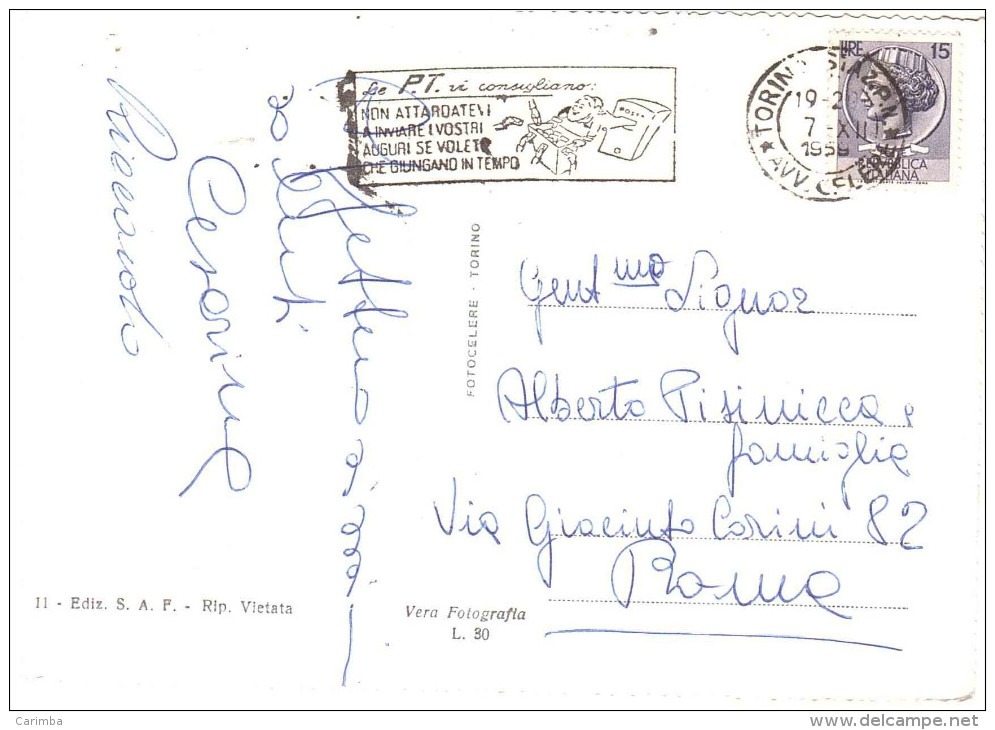 Le P.T. vi consigliano:
NON ATTARDATEVI
A INVIARE I VOSTRI
AUGURI SE VOLETE
CHE GIUNGANO IN TEMPO
TORINO
19-2
7-XII
1959
AVV. CELERE
LIRE 15
REPUBBLICA
ITALIANA
Affettuosi
saluti
Cesarina
FOTOCELERE - TORINO
Gent mo Signor
Alberto Pisinicca e
famiglia
Via Giacinto Carini 82
Roma
11 - Ediz. S. A. F. - Rip. Vietata
Vera Fotografia
L. 30
Carimba
www.delcampe.net